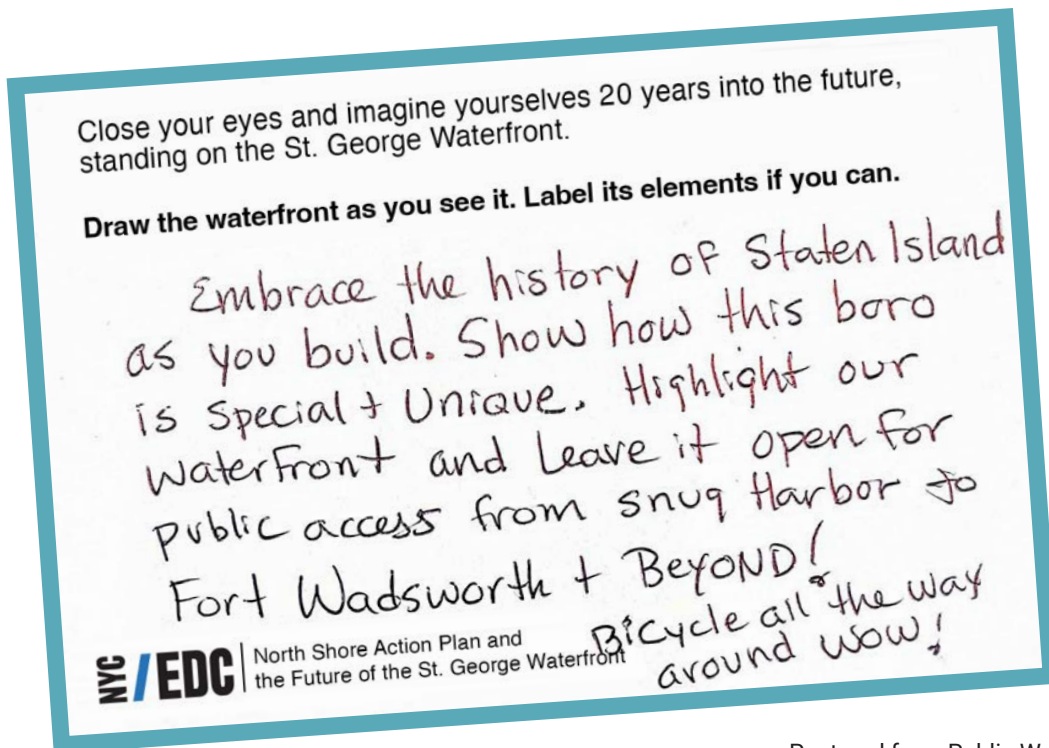 Close your eyes and imagine yourselves 20 years into the future,
standing on the St. George Waterfront.
Draw the waterfront as you see it. Label its elements if you can.
Embrace the history of Staten Island
as you build. Show how this boro
is Special + Unique. Highlight our
waterfront and leave it open for
public access from snug Harbor to
Fort Wadsworth + BeYOND!
Bicycle all the way
around wow!
NYC/EDC
North Shore Action Plan and
the Future of the St. George Waterfront